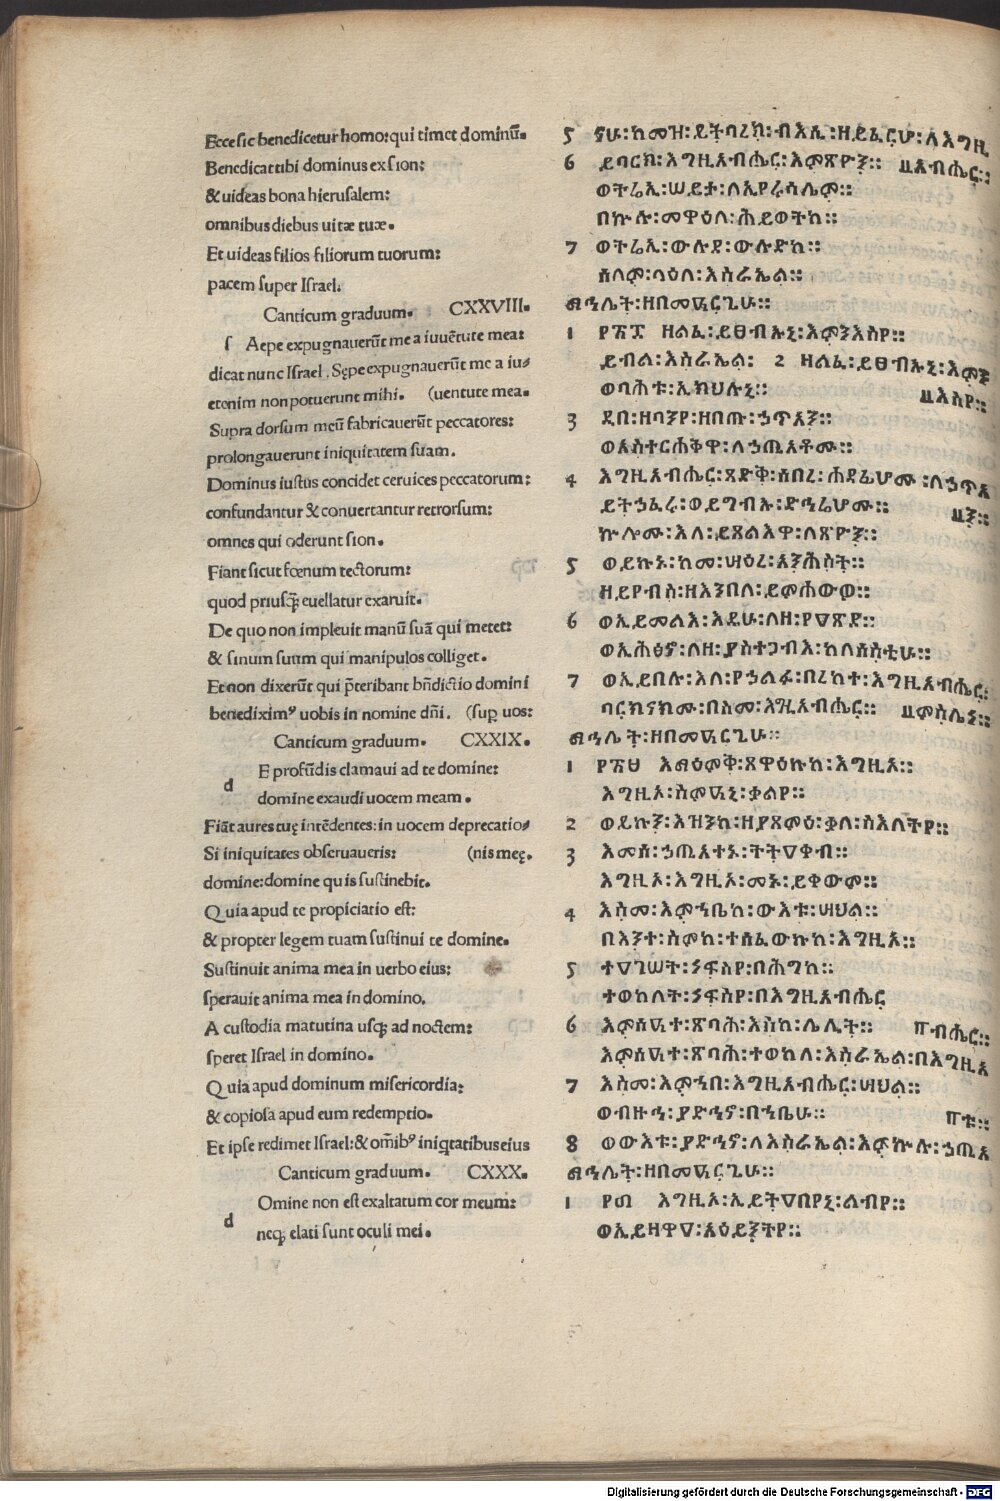 Ecce sic benedicetur homo: qui timet dominū.
Benedicat tibi dominus ex sion:
& uideas bona hierusalem:
omnibus diebus uitæ tuæ.
Et uideas filios filiorum tuorum:
pacem super Israel.
Canticum graduum. CXXVIII.
s Aepe expugnauerūt me a iuuētute mea:
dicat nunc Israel. Sępe expugnauerūt me a iu⸗
etenim non potuerunt mihi. (uentute mea.
Supra dorsum meū fabricauerūt peccatores:
prolongauerunt iniquitatem suam.
Dominus iustus concidet ceruices peccatorum:
confundantur & conuertantur retrorsum:
omnes qui oderunt sion.
Fiant sicut fœnum tectorum:
quod priusq̄ euellatur exaruit.
De quo non impleuit manū suā qui metet:
& sinum suum qui manipulos colliget.
Et non dixerūt qui p̄teribant bn̄dictio domini
benediximꝰ uobis in nomine dn̄i. (sup uos:
Canticum graduum. CXXIX.
d E profūdis clamaui ad te domine:
domine exaudi uocem meam.
Fiāt aures tuę intēdentes: in uocem deprecatio⸗
Si iniquitates obseruaueris: (nis meę.
domine: domine quis sustinebit.
Quia apud te propiciatio est:
& propter legem tuam sustinui te domine.
Sustinuit anima mea in uerbo eius:
sperauit anima mea in domino.
A custodia matutina usq; ad noctem:
speret Israel in domino.
Quia apud dominum misericordia:
& copiosa apud eum redemptio.
Et ipse redimet Israel: & om̄ibꝰ iniqtatibus eius
Canticum graduum. CXXX.
d Omine non est exaltatum cor meum:
neq; elati sunt oculi mei.
5 ናሁ፡ከመዝ፡ይትባረክ፡ብእሲ፡ዘይፈርሆ፡ለእግዚ
6 ይባርክ፡እግዚአብሔር፡እምጽዮን። ᎓አብሔር።
ወትሬኢ፡ሠይተ፡ለኢየሩሳሌም።
በኵሉ፡መዋዕለ፡ሕይወትከ።
7 ወትሬኢ፡ውሉደ፡ውሉድከ።
ሰላም፡ላዕለ፡እስራኤል።
ማኅሌት፡ዘበመዓርጊሁ።
1 ፻፳፰ ዘልፈ፡ይፀብኡኒ፡እምንእስየ።
ይብል፡እስራኤል፡ 2 ዘልፈ፡ይፀብኡኒ፡እምን
ወባሕቱ፡ኢክህሉኒ። እስየ።
3 ዲበ፡ዘባንየ፡ዘበጡ፡ኃጥአን።
ወአስተርሐቅዋ፡ለኃጢአቶሙ።
4 እግዚአብሔር፡ጻድቅ፡ሰበረ፡ሐደፊሆሙ፡ለኃጥአ
ይትኃፈሩ፡ወይግብኡ፡ድኅሬሆሙ። ን።
ኵሎሙ፡እለ፡ይጸልእዋ፡ለጽዮን።
5 ወይኩኑ፡ከመ፡ሣዕረ፡አንሕስት።
ዘይየብስ፡ዘእንበለ፡ይምሐውዎ።
6 ወኢይመልእ፡እዴሁ፡ለዘ፡የዐጽድ።
ወኢሕፅኖ፡ለዘ፡ያስተጋብእ፡ከላስስቲሁ።
7 ወኢይበሉ፡እለ፡የኃልፉ፡በረከተ፡እግዚአብሔር፡
ባርክናክሙ፡በስመ፡እግዚአብሔር። ምስሌክ።
ማኅሌት፡ዘበመዓርጊሁ።
1 ፻፳፱ እምዕምቅ፡ጸዋዕኩከ፡እግዚኦ።
እግዚኦ፡ስምዓኒ፡ቃልየ።
2 ወይኩን፡እዝንከ፡ዘያጸምዕ፡ቃለ፡ስእለትየ።
3 እመሰ፡ኃጢአተኑ፡ትትዐቀብ።
እግዚኦ፡እግዚኦ፡መኑ፡ይቀውም።
4 እስመ፡እምኀቤከ፡ውእቱ፡ሣህል።
በእንተ፡ስምከ፡ተሰፈውኩከ፡እግዚኦ።
5 ተዐገሠት፡ነፍስየ፡በሕግከ።
ተወከለት፡ነፍስየ፡በእግዚአብሔር
6 እምሰዓተ፡ጽባሕ፡እስከ፡ሌሊት። ብሔር።
እምሰዓተ፡ጽባሕ፡ተወከለ፡እስራኤል፡በእግዚአ
7 እስመ፡እምኀበ፡እግዚአብሔር፡ሣህል።
ወብዙኅ፡ያድኅኖ፡በኀቤሁ። ቱ።
8 ወውእቱ፡ያድኅኖ፡ለእስራኤል፡እምኵሉ፡ኃጢአ
ማኅሌት፡ዘበመዓርጊሁ።
1 ፻፴ እግዚኦ፡ኢይትዐበየኒ፡ልብየ።
ወኢይዘዋዐ፡አዕይንትየ።
Digitalisierung gefördert durch die Deutsche Forschungsgemeinschaft - DFG